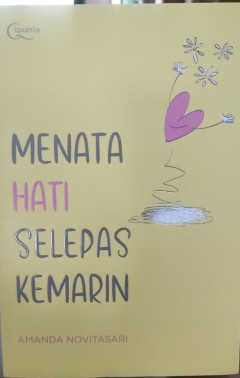 Quanta
MENATA
HATI
SELEPAS
KEMARIN
AMANDA NOVITASARI